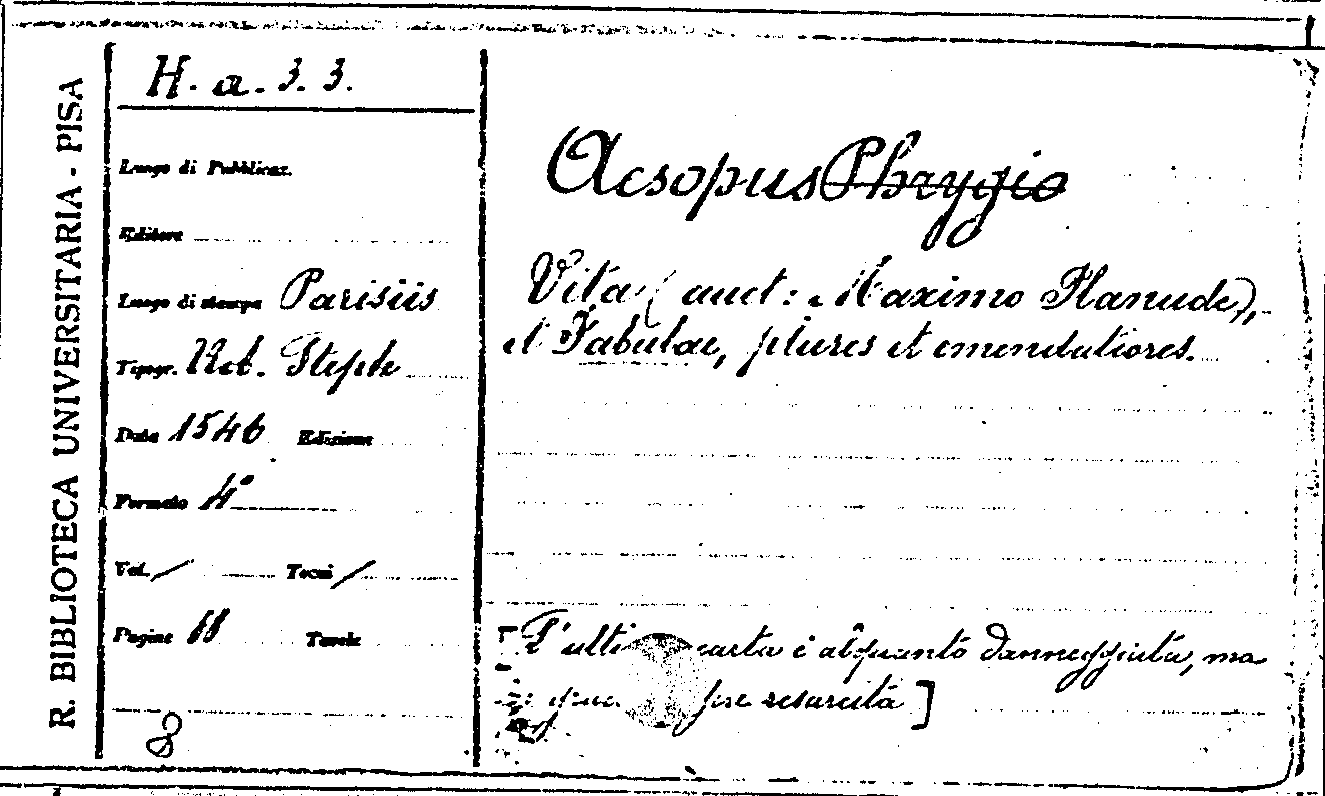 R. BIBLIOTECA UNIVERSITARIA - PISA
H. a. 3. 3.
Luogo di Pubblicaz.
Editore
Luogo di stampa Parisiis
Tipogr. Rob. Steph
Data 1546 Edizione
Formato 4°
Vol. / Tomi /
Pagine Tavole
Aesopus Phrygio
Vita (auct: Maximo Planude),
et Fabulae, plures et emendatiores.
[L'ulti carta è alquanto danneggiata, ma
resarcita]